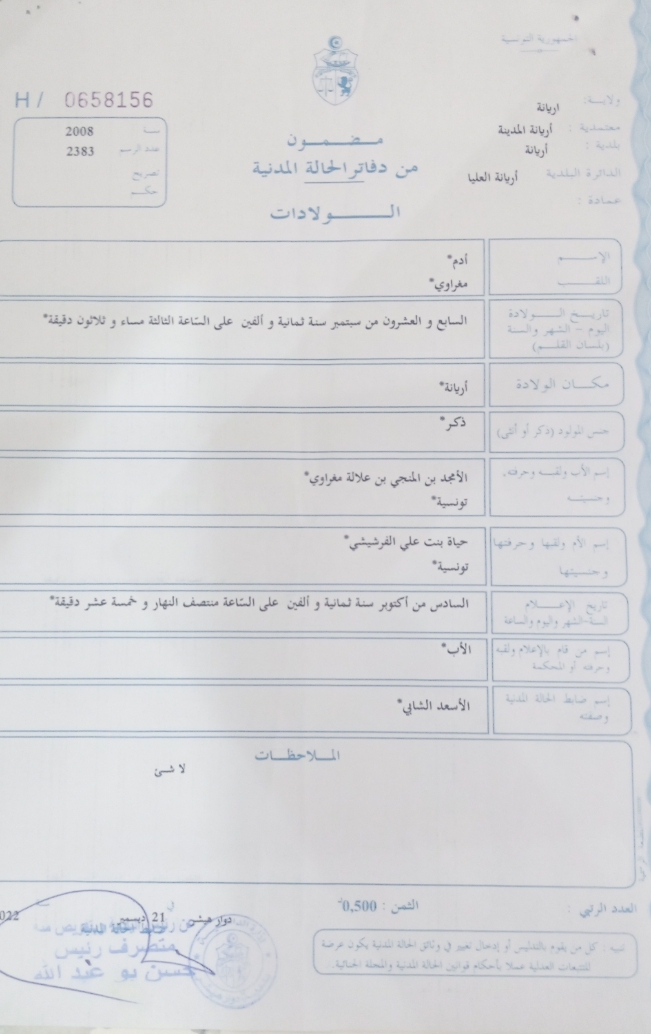 الجمهورية التونسية
H / 0658156
ولاية: اريانة
معتمدية : أريانة المدينة
بلدية : أريانة
الدائرة البلدية أريانة العليا
عمادة :
سنة 2008
عدد الرسم 2383
تصريح
حكم
مضمون
من دفاتر الحالة المدنية
الولادات
الإسم أدم*
اللقب مغراوي*
تاريخ الولادة
اليوم - الشهر والسنة
(بلسان القلم)
السابع و العشرون من سبتمبر سنة ثمانية و ألفين على الساعة الثالثة مساء و ثلاثون دقيقة*
مكان الولادة أريانة*
جنس المولود (ذكر أو أنثى) ذكر*
إسم الأب ولقبه وحرفته، الأمجد بن المنجي بن علالة مغراوي*
وجنسيته تونسية*
إسم الأم ولقبها وحرفتها حياة بنت علي الفرشيشي*
وجنسيتها تونسية*
تاريخ الإعلام
السنة-الشهر واليوم والساعة
السادس من أكتوبر سنة ثمانية و ألفين على الساعة منتصف النهار و خمسة عشر دقيقة*
إسم من قام بالإعلام ولقبه
وحرفته أو المحكمة
الأب*
إسم ضابط الحالة المدنية
وصفته
الأسعد الشابي*
الملاحظات
لا شئ
العدد الرتبي :
الثمن : 0,500
دوار هيشر في 21 ديسمبر 2022
متصرف رئيس
حسن بو عبد الله
تنبيه : كل من يقوم بالتدليس أو إدخال تغيير في وثائق الحالة المدنية يكون عرضة
للتتبعات العدلية عملا بأحكام قوانين الحالة المدنية والمجلة الجنائية.